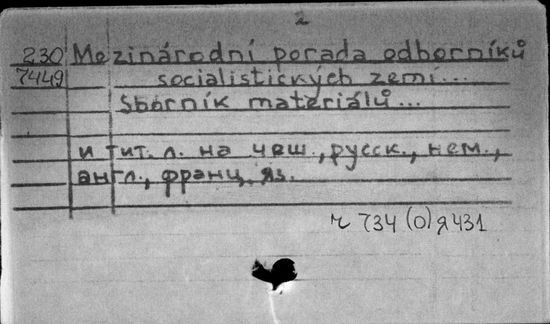 2
230 Mezinárodní porada odborníků
7449 socialistických zemí...
Sborník materiálů...
и тит. л. на чеш., русск., нем.,
англ., франц. яз.
ч 734 (0) я 431